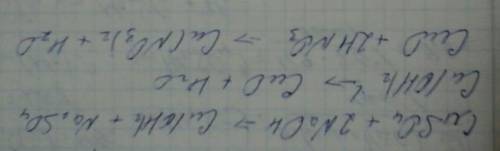 CuSO₄ + 2NaOH → Cu(OH)₂ + Na₂SO₄
Cu(OH)₂ → CuO + H₂O
CuO + 2HNO₃ → Cu(NO₃)₂ + H₂O